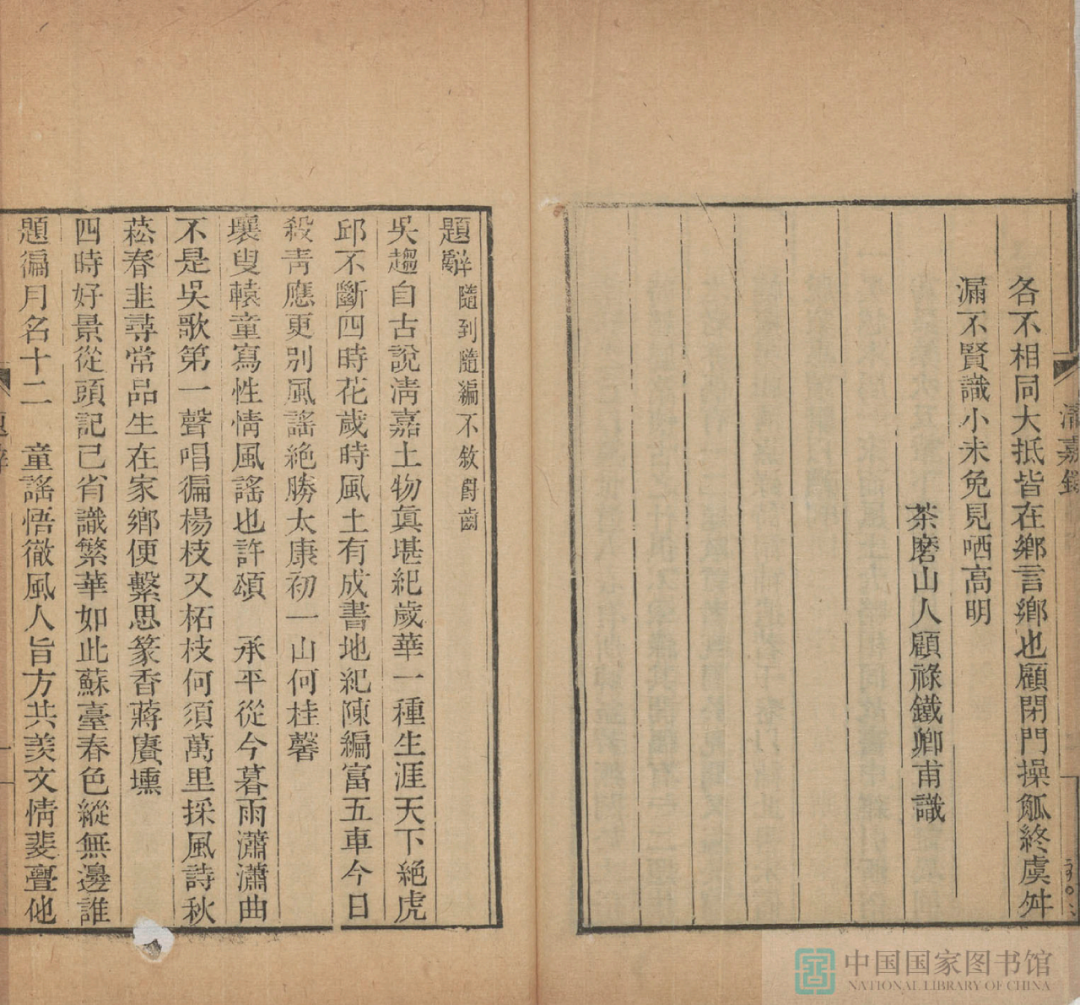 各不相同大抵皆在鄉言鄉也顧閉門操觚終虞舛
漏不賢識小未免見哂高明
茶磨山人顧祿鐵卿甫識
清嘉錄
題辭隨到隨編不敘爵齒
吳趨自古說淸嘉土物眞堪紀歲華一種生涯天下絶虎
邱不斷四時花歲時風土有成書地紀陳編富五車今日
殺青應更别風謠絶勝太康初一山何桂馨
壤叟轅童寫性情風謠也許頌承平從今暮雨瀟瀟曲
不是吳歌第一聲唱徧楊枝又柘枝何須萬里採風詩秋
菘春韭尋常品生在家鄉便繫思篆香蔣賡壎
四時好景從頭記己省識繁華如此蘇臺春色縱無邊誰
題徧月名十二 童謠悟徹風人旨方共羨文情斐亹他
中国国家图书馆
NATIONAL LIBRARY OF CHINA